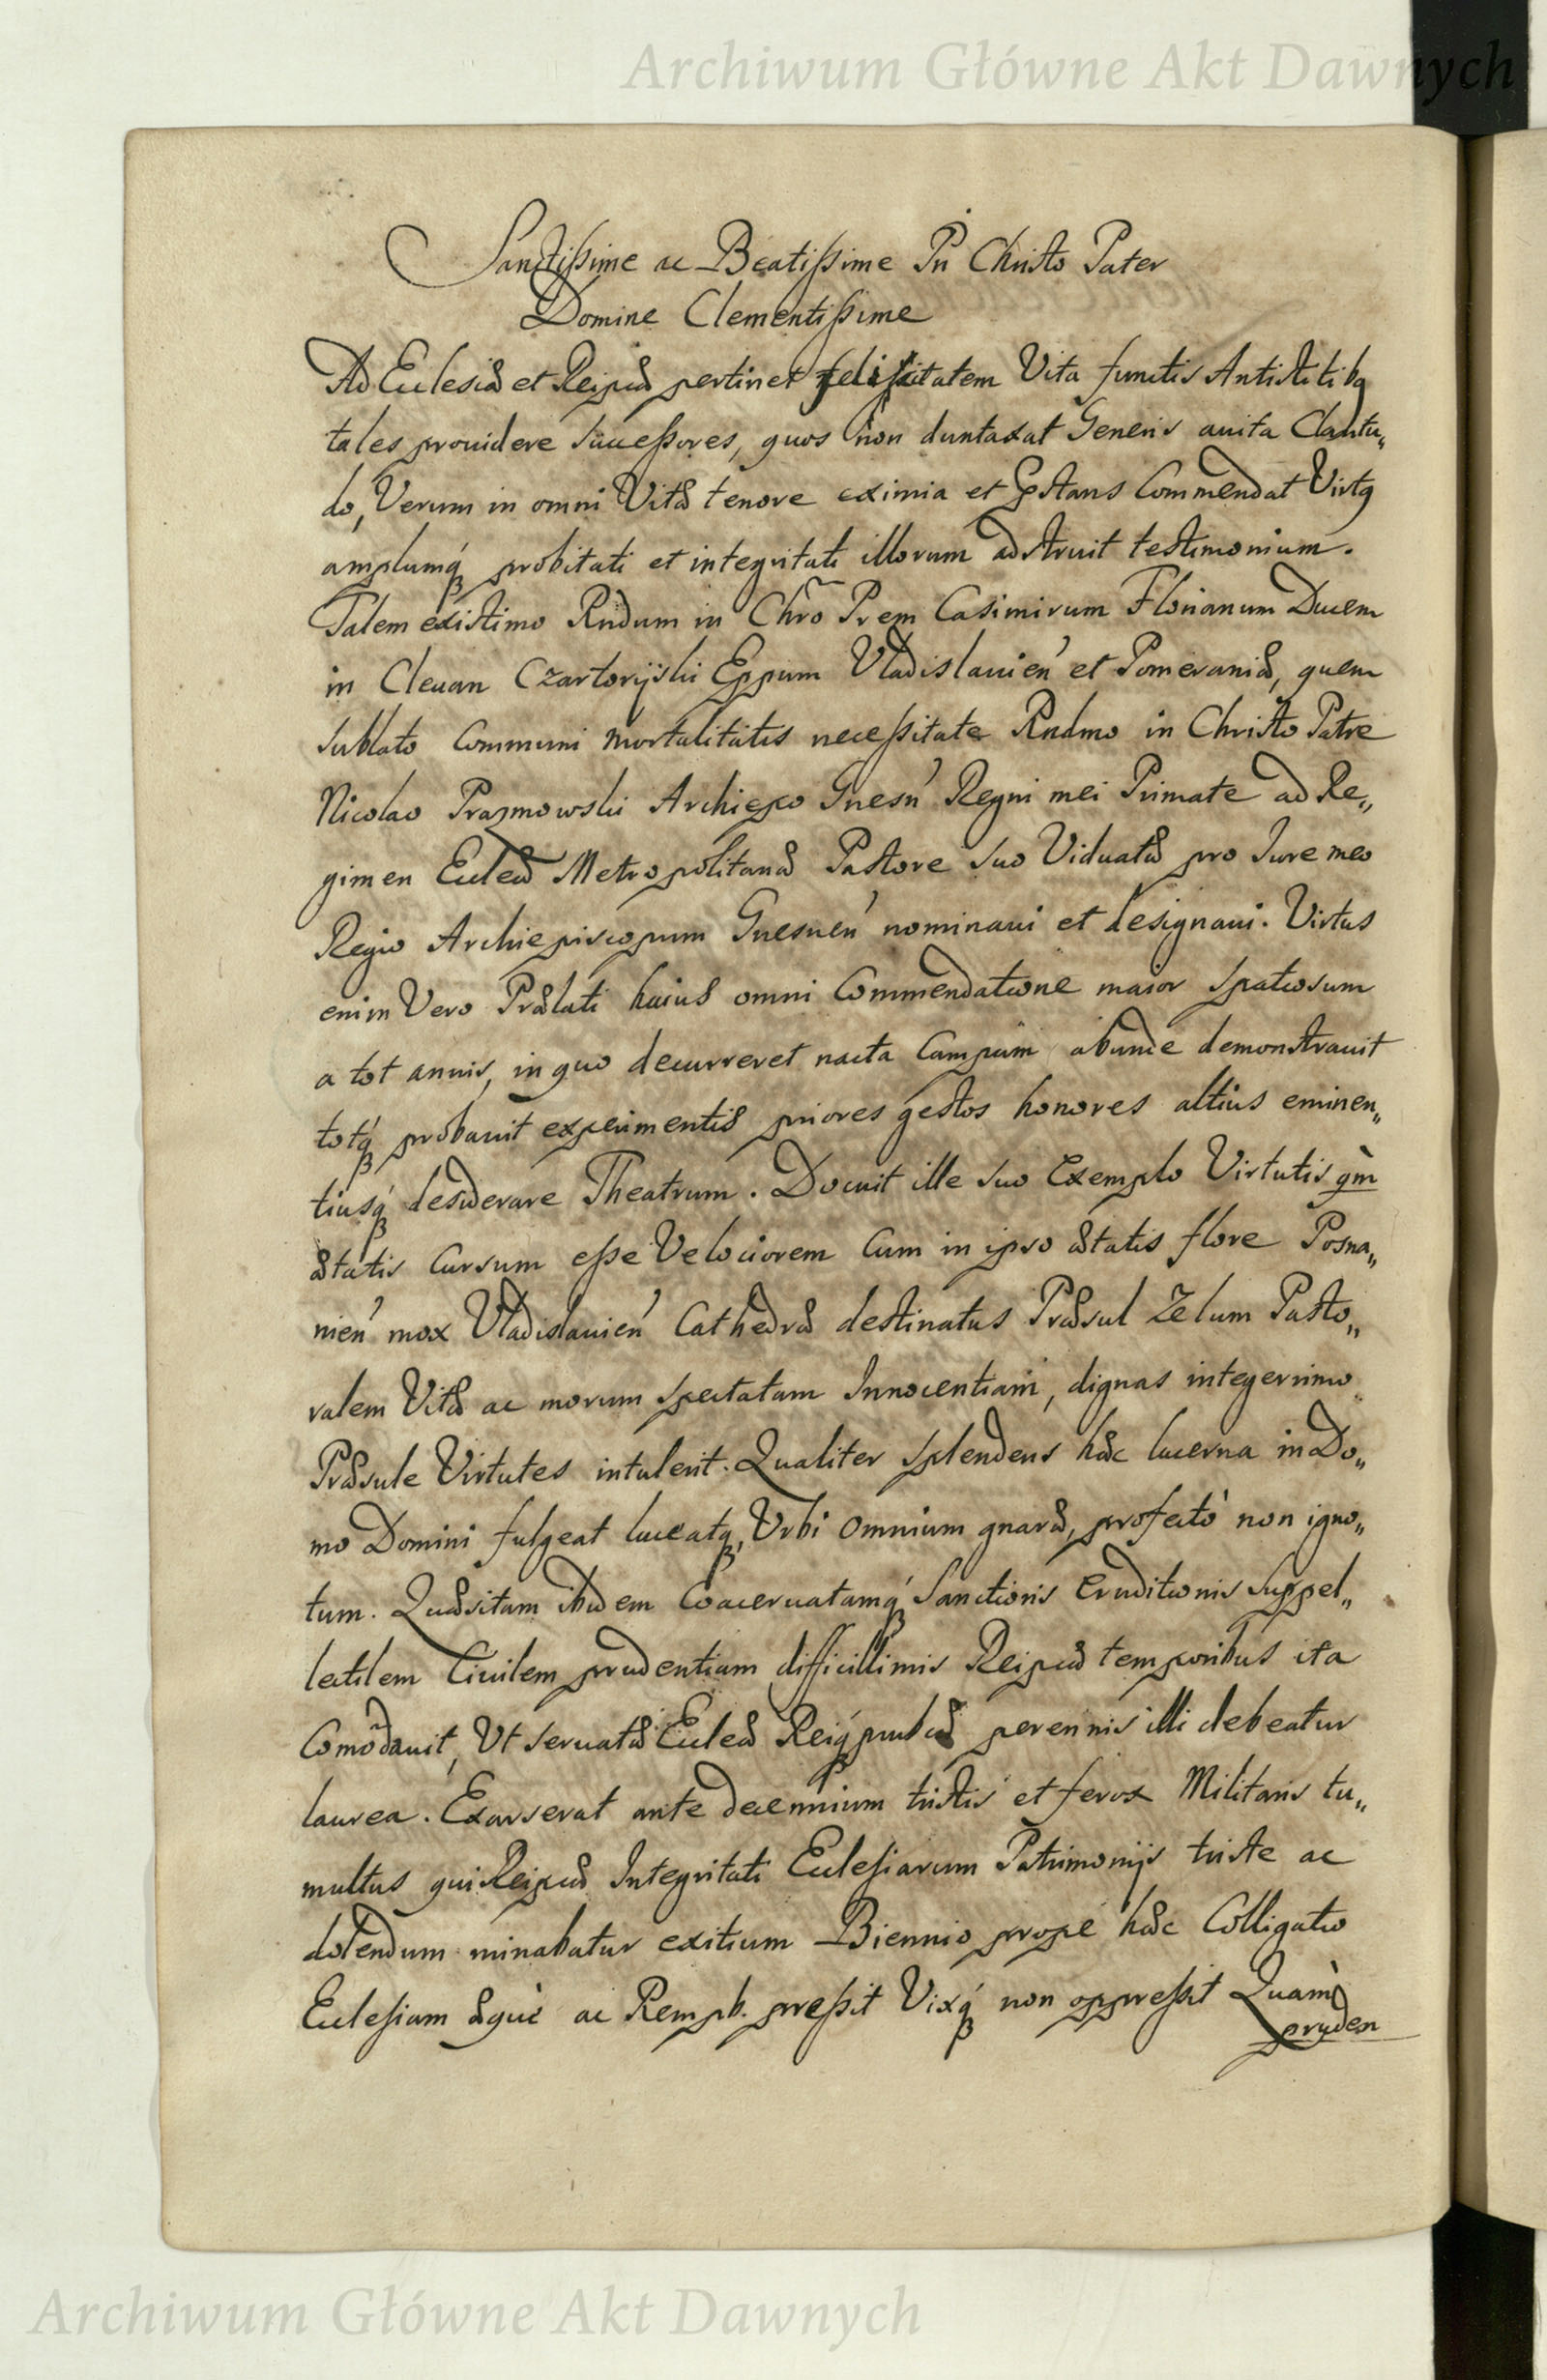 Archiwum Główne Akt Dawnych
Sanctissime ac Beatissime In Christo Pater
Domine Clementissime
Ad Ecclesiæ et Reipcæ pertinet felicitatem Vita functis Antistitibq
tales prouidere Successores, quos non duntaxat Generis auita Claritu„
do, Verum in omni Vitæ tenore eximia et pstans Commendat Virtq
amplumq́ probitati et integritati illorum adstruit testimonium.
Talem existimo Rndum in Chro Prem Casimirum Florianum Ducem
in Cleuan Czartoryiski Eppum Vladislauien' et Pomeraniæ, quem
sublato Communi mortalitatis necessitate Rndmo in Christo Patre
Nicolao Prazmowski Archiepo Gnesn' Regni mei Primate ad Re„
gimen Ecclæ Metropolitanæ Pastore suo Viduatæ pro Iure meo
Regio Archiepiscopum Gnesnen' nominaui et designaui. Virtus
enim Vero Prælati huius omni Commendatione maior spatiosum
a tot annis, in quo decurreret nacta Campum abunde demonstrauit
totq́ probauit experimentis priores gestos honores altius eminen„
tiusq́ desiderare Theatrum. Docuit ille suo Exemplo Virtutis qm̀
ætatis Cursum esse Velociorem Cum in ipso ætatis flore Posna„
nien' mox Vladislauien' Cathedræ destinatus Præsul Zelum Pasto„
ralem Vitæ ac morum spectatam Innocentiam, dignas integerrimo
Præsule Virtutes intulerit. Qualiter splendens hæc lucerna in Do„
mo Domini fulgeat luceatq, Vrbi omnium gnaræ, profectò non igno„
tum. Quæsitam ibidem Coaceruatamq́ Sanctioris Eruditionis suppel„
lectilem Ciuilem prudentiam difficillimis Reipcæ temporibus ita
Comodauit, Vt seruatæ Ecclæ Reiq́ pubcæ perennis illi debeatur
laurea. Exarserat ante decennium tristis et ferox Militaris tu„
multus qui Reipcæ Integritati Ecclesiarum Patrimonijs triste ac
dolendum minabatur exitium Biennio prope hæc Colligatio
Ecclesiam æquè ac Rempb. pressit Vixq́ non oppressit Quam̀
pruden
Archiwum Główne Akt Dawnych